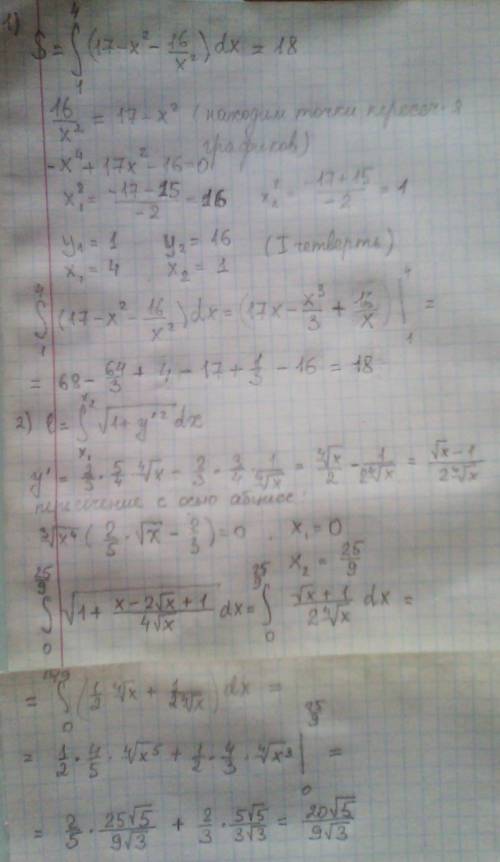 1) S = ∫₁⁴ (17 − x² − 16/x²) dx = 18
16/x² = 17 − x² (находим точки пересеч-я
графиков)
−x⁴ + 17x² − 16 = 0
x₁² = (−17 − 15)/(−2) = 16 x₂² = (−17 + 15)/(−2) = 1
y₁ = 1 y₂ = 16 (I четверть)
x₁ = 4 x₂ = 1
∫₁⁴ (17 − x² − 16/x²) dx = (17x − x³/3 + 16/x) |₁⁴ =
= 68 − 64/3 + 4 − 17 + 1/3 − 16 = 18
2) l = ∫ₓ₁ˣ² √(1 + y'²) dx
y' = 2/5 · 5/4 ∜x − 2/3 · 3/4 · 1/∜x = ∜x/2 − 1/(2∜x) = (√x − 1)/(2∜x)
пересечение с осью абцисс:
(2/5 · √x − 2/3) = 0 x₁ = 0
x₂ = 25/9
∫₀^(25/9) √(1 + (x − 2√x + 1)/(4√x)) dx = ∫₀^(25/9) (√x + 1)/(2∜x) dx =
= ∫₀ (1/2 ∜x + 1/(2∜x)) dx =
= 1/2 · 4/5 · ∜x⁵ + 1/2 · 4/3 · ∜x³ |₀^(25/9) =
= 2/5 · 25√5/(9√3) + 2/3 · 5√5/(3√3) = 20√5/(9√3)